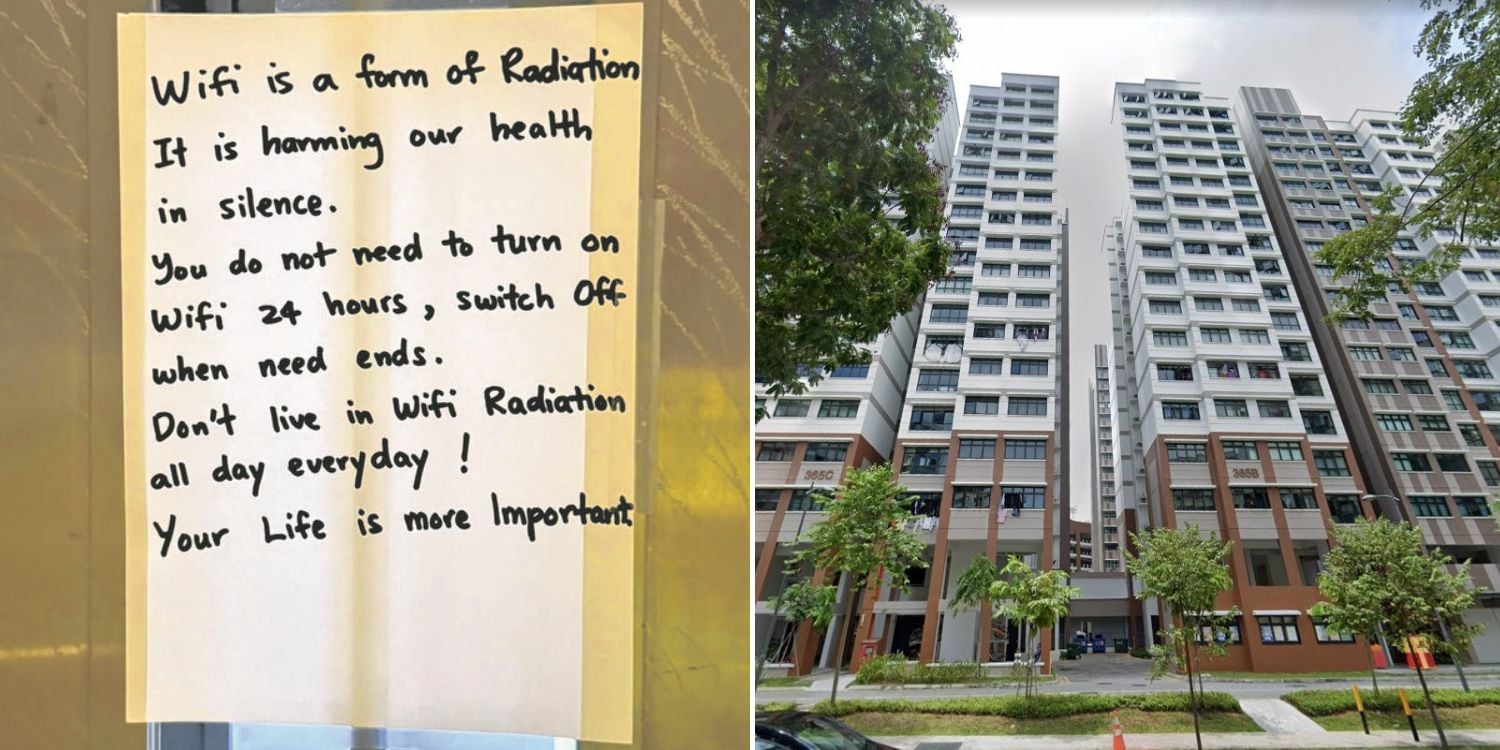 Wifi is a form of Radiation
It is harming our health
in silence.
You do not need to turn on
Wifi 24 hours, switch Off
when need ends.
Don't live in Wifi Radiation
all day everyday!
Your Life is more Important
365C
365B